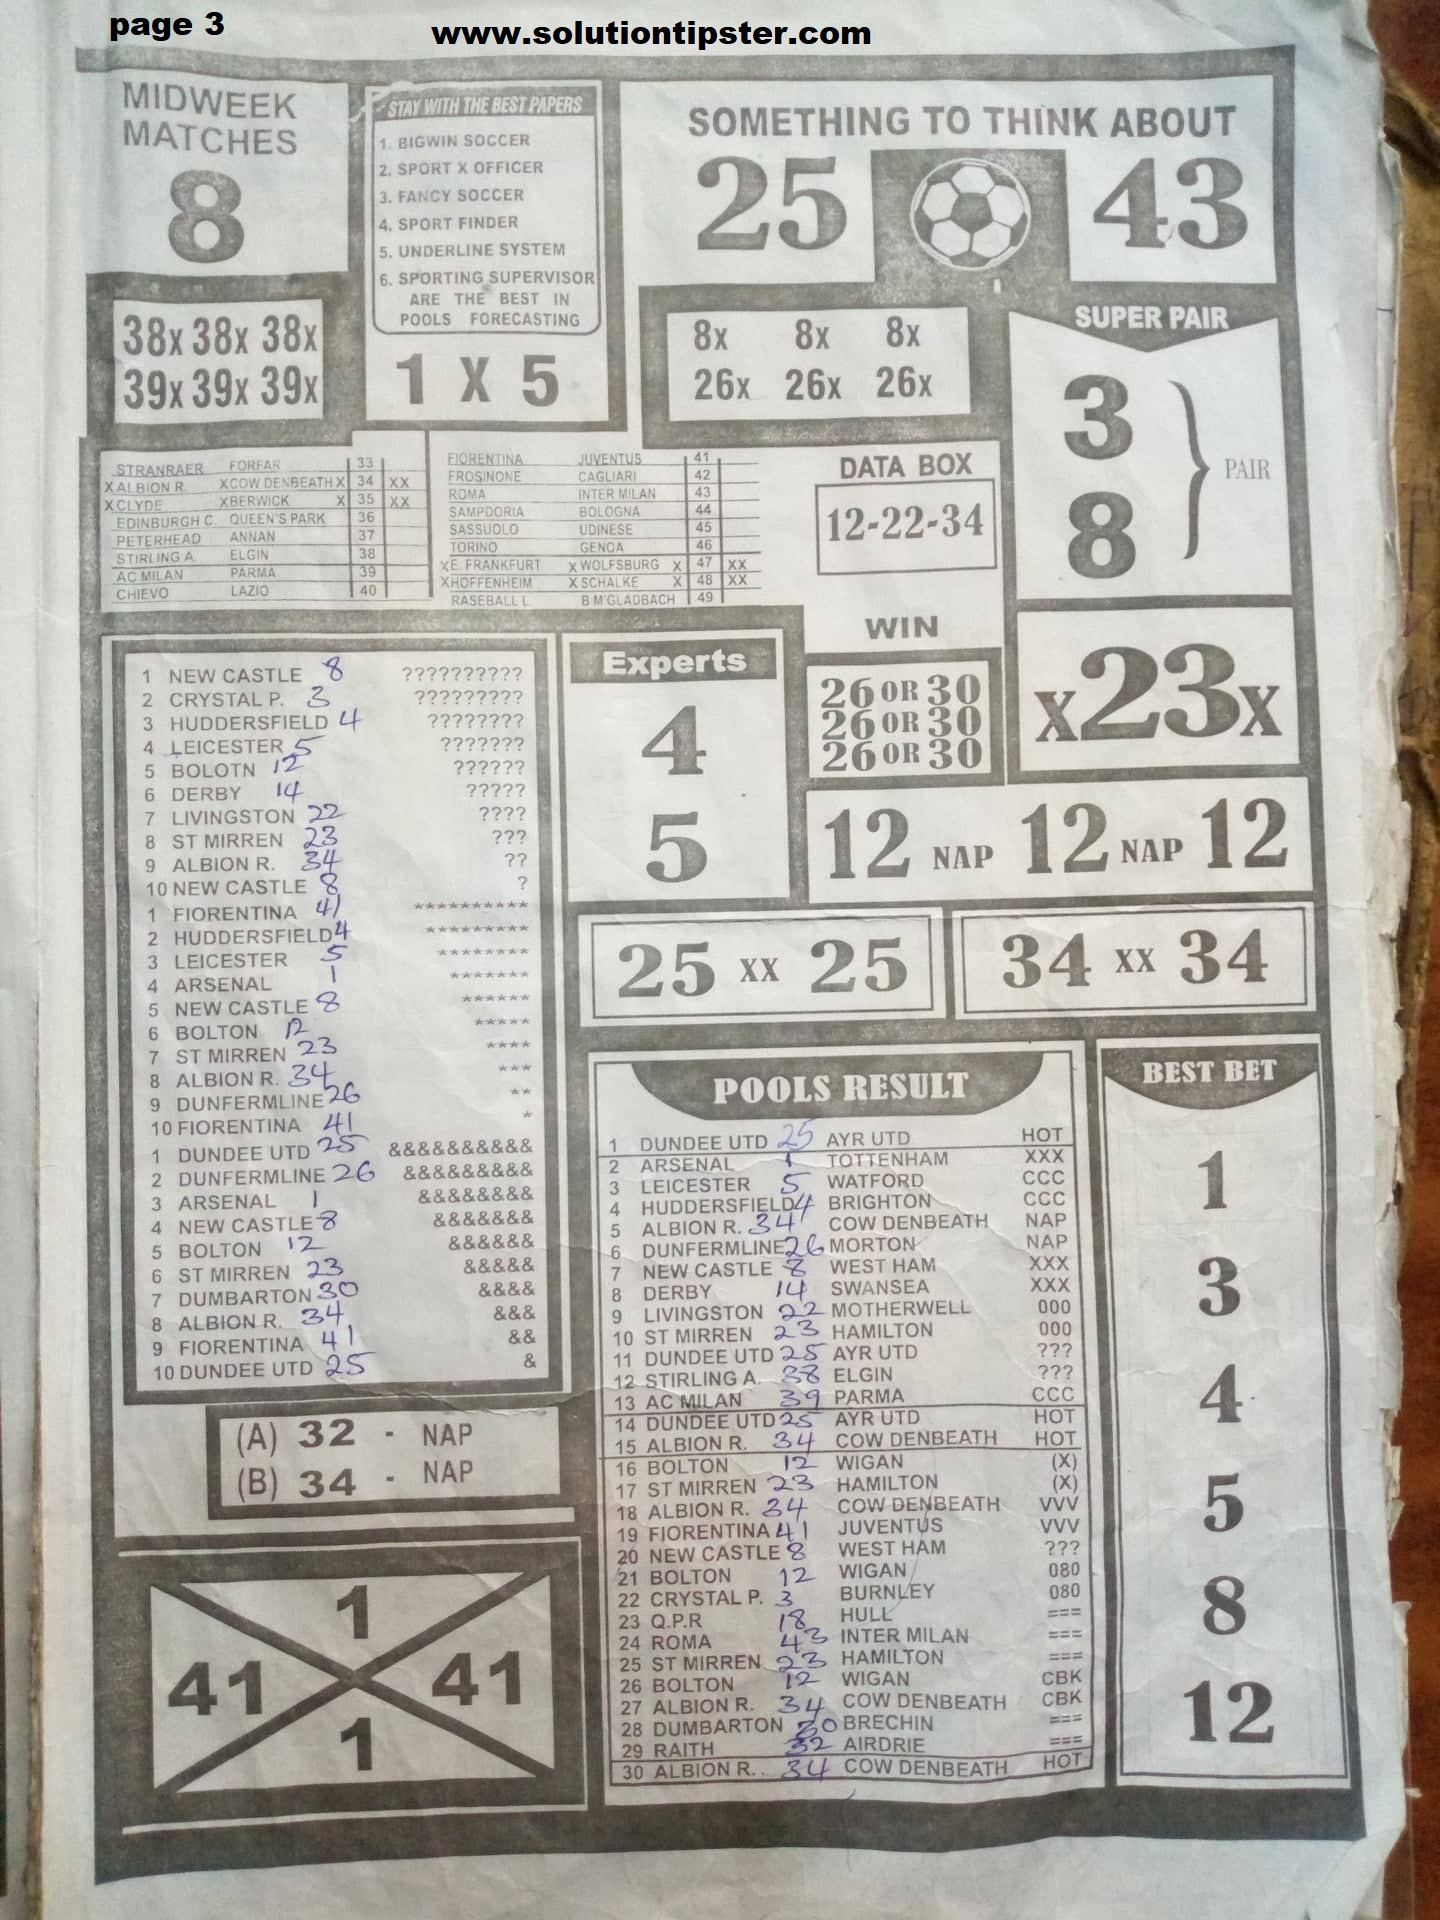 page 3
www.solutiontipster.com
MIDWEEK
MATCHES
8
STAY WITH THE BEST PAPERS
1. BIGWIN SOCCER
2. SPORT X OFFICER
3. FANCY SOCCER
4. SPORT FINDER
5. UNDERLINE SYSTEM
6. SPORTING SUPERVISOR
ARE THE BEST IN
POOLS FORECASTING
1 X 5
SOMETHING TO THINK ABOUT
25 43
38x 38x 38x
39x 39x 39x
8x 8x 8x
26x 26x 26x
SUPER PAIR
3
8
PAIR
STRANRAER FORFAR 33
X ALBION R. X COW DENBEATH X 34 XX
X CLYDE X BERWICK X 35 XX
EDINBURGH C. QUEEN'S PARK 36
PETERHEAD ANNAN 37
STIRLING A. ELGIN 38
AC MILAN PARMA 39
CHIEVO LAZIO 40
FIORENTINA JUVENTUS 41
FROSINONE CAGLIARI 42
ROMA INTER MILAN 43
SAMPDORIA BOLOGNA 44
SASSUOLO UDINESE 45
TORINO GENOA 46
X E. FRANKFURT X WOLFSBURG X 47 XX
X HOFFENHEIM X SCHALKE X 48 XX
RASEBALL L. B M'GLADBACH 49
DATA BOX
12-22-34
WIN
26 OR 30
26 OR 30
26 OR 30
X 23 X
1 NEW CASTLE 8 ??????????
2 CRYSTAL P. 3 ?????????
3 HUDDERSFIELD 4 ????????
4 LEICESTER 5 ???????
5 BOLOTN 12 ??????
6 DERBY 14 ?????
7 LIVINGSTON 22 ????
8 ST MIRREN 23 ???
9 ALBION R. 34 ??
10 NEW CASTLE 8 ?
1 FIORENTINA 41 **********
2 HUDDERSFIELD 4 *********
3 LEICESTER 5 ********
4 ARSENAL 1 *******
5 NEW CASTLE 8 ******
6 BOLTON 12 *****
7 ST MIRREN 23 ****
8 ALBION R. 34 ***
9 DUNFERMLINE 26 **
10 FIORENTINA 41 *
1 DUNDEE UTD 25 &&&&&&&&&&
2 DUNFERMLINE 26 &&&&&&&&&
3 ARSENAL 1 &&&&&&&&
4 NEW CASTLE 8 &&&&&&&
5 BOLTON 12 &&&&&&
6 ST MIRREN 23 &&&&&
7 DUMBARTON 30 &&&&
8 ALBION R. 34 &&&
9 FIORENTINA 41 &&
10 DUNDEE UTD 25 &
Experts
4
5
12 NAP 12 NAP 12
25 XX 25
34 XX 34
(A) 32 - NAP
(B) 34 - NAP
1
41 41
1
POOLS RESULT
1 DUNDEE UTD 25 AYR UTD HOT
2 ARSENAL 1 TOTTENHAM XXX
3 LEICESTER 5 WATFORD CCC
4 HUDDERSFIELD 4 BRIGHTON CCC
5 ALBION R. 34 COW DENBEATH NAP
6 DUNFERMLINE 26 MORTON NAP
7 NEW CASTLE 8 WEST HAM XXX
8 DERBY 14 SWANSEA XXX
9 LIVINGSTON 22 MOTHERWELL 000
10 ST MIRREN 23 HAMILTON 000
11 DUNDEE UTD 25 AYR UTD ???
12 STIRLING A. 38 ELGIN ???
13 AC MILAN 39 PARMA CCC
14 DUNDEE UTD 25 AYR UTD HOT
15 ALBION R. 34 COW DENBEATH HOT
16 BOLTON 12 WIGAN (X)
17 ST MIRREN 23 HAMILTON (X)
18 ALBION R. 34 COW DENBEATH VVV
19 FIORENTINA 41 JUVENTUS VVV
20 NEW CASTLE 8 WEST HAM ???
21 BOLTON 12 WIGAN 080
22 CRYSTAL P. 3 BURNLEY 080
23 Q.P.R 18 HULL ===
24 ROMA 43 INTER MILAN ===
25 ST MIRREN 23 HAMILTON ===
26 BOLTON 12 WIGAN CBK
27 ALBION R. 34 COW DENBEATH CBK
28 DUMBARTON 30 BRECHIN ===
29 RAITH 32 AIRDRIE ===
30 ALBION R.. 34 COW DENBEATH HOT
BEST BET
1
3
4
5
8
12